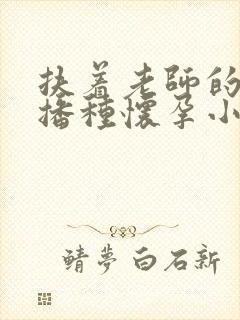 扶着老師的
播種懷孕小
鯖夢白石新